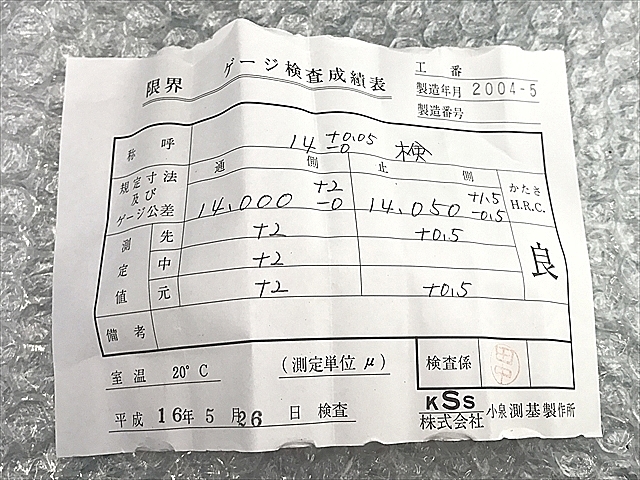 限界 ゲージ検査成績表
工番
製造年月 2004-5
製造番号
称呼 14 +0.05 -0 検
規定寸法及びゲージ公差 通側 止側 かたさ H.R.C.
14.000 +2 -0 14.050 +1.5 -0.5 良
測定値 先 +2 +0.5
中 +2
元 +2 +0.5
備考
室温 20°C (測定単位 μ) 検査係 田中
平成 16年 5月 26日 検査
KSS 株式会社 小泉測基製作所